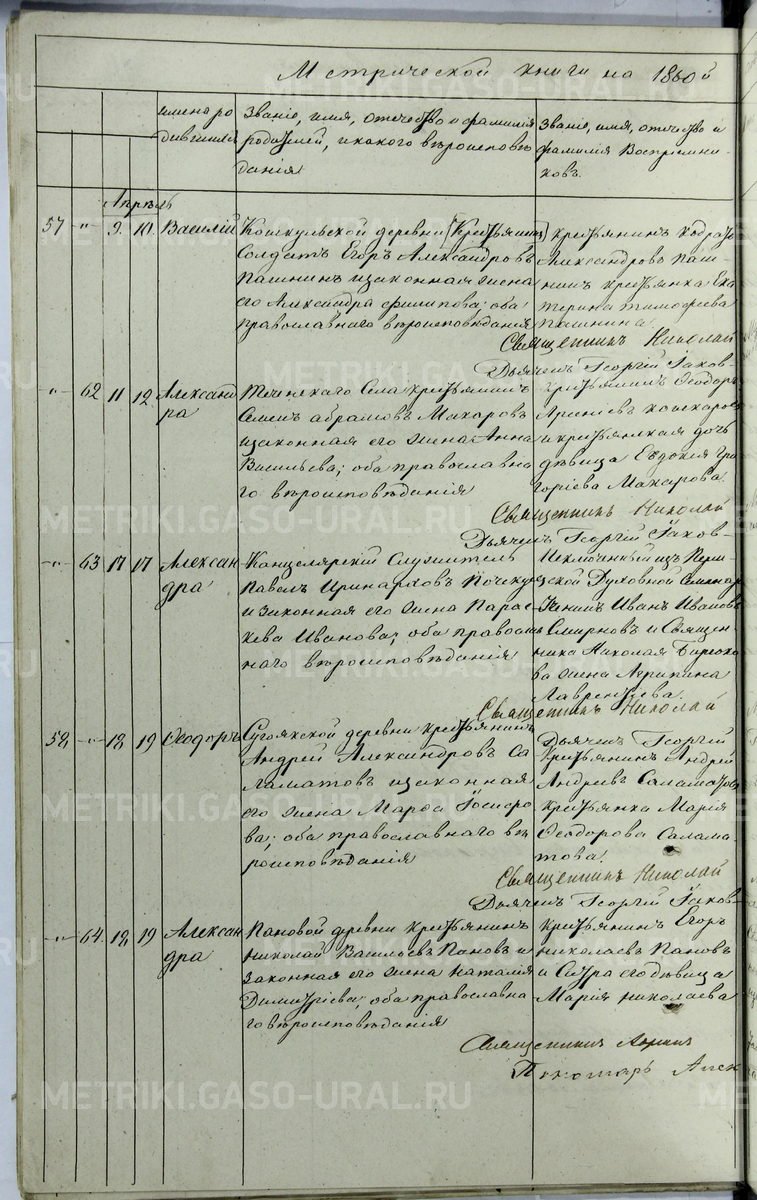 Метрической книги на 1860й
имена родившихся
Званіе, имя, отечество и фамилія
родителей, и какого вѣроисповѣ
данія
Званіе, имя, отчество и
фамилія Воспріемни-
ковъ.
Апрѣль
57 " 9. 10. Василій
Кошкульской деревни (Крестьянинъ)
Солдатъ Егоръ Александровъ
Пашнинъ и законная жена
его Александра Филипова; оба
православнаго вѣроисповѣданія
Крестьянинъ
Александровъ Паш-
нинъ крестьянка Ека
терина Тимофеева
Пашнина
Священникъ Николай
Дьячекъ Георгій Іаков-
" 62 11 12 Александ
ра
Теченскаго Села крестьянинъ
Семенъ Абрамовъ Макаровъ
и законная его жена Анна
Васильева; оба православна
го вѣроисповѣданія
крестьянинъ Ѳеодоръ
и крестьянская дочь
дѣвица Евдокія Гри
горіева Макарова.
Священникъ Николай
Дьячекъ Георгій Іаков-
" 63 17 17 Алексан
дра
Канцелярскій Служитель
Павелъ Иринарховъ
и законная его жена Парас
кева Иванова; оба православ
наго вѣроисповѣданія
Исключенный изъ Перм-
ской Духовной Семинар
Иванъ Ивановъ
Смирновъ и Священ-
ника Николая Бирюко
ва жена Агрипина
Лаврентьева.
Священникъ Николай
Дьячекъ Георгій
58 " 18 19 Ѳеодоръ
Сугоякской деревни крестьянинъ
Андрей Александровъ Са
ламатовъ и законная
его жена Марѳа Іосифо
ва; оба православнаго вѣ
роисповѣданія
крестьянинъ Андрей
Андреевъ Саламатовъ
крестьянка Марія
Ѳеодорова Салама-
това.
Священникъ Николай
Дьячекъ Георгій Іаков-
" 64 18 19 Алексан
дра
Пановой деревни крестьянинъ
Николай Васильевъ Пановъ и
законная его жена Наталія
Димитріева; оба православна
го вѣроисповѣданія
крестьянинъ Егоръ
Николаевъ Пановъ
и Сестра его дѣвица
Марія Николаева
Священникъ
Пономарь Алек
METRIKI.GASO-URAL.RU